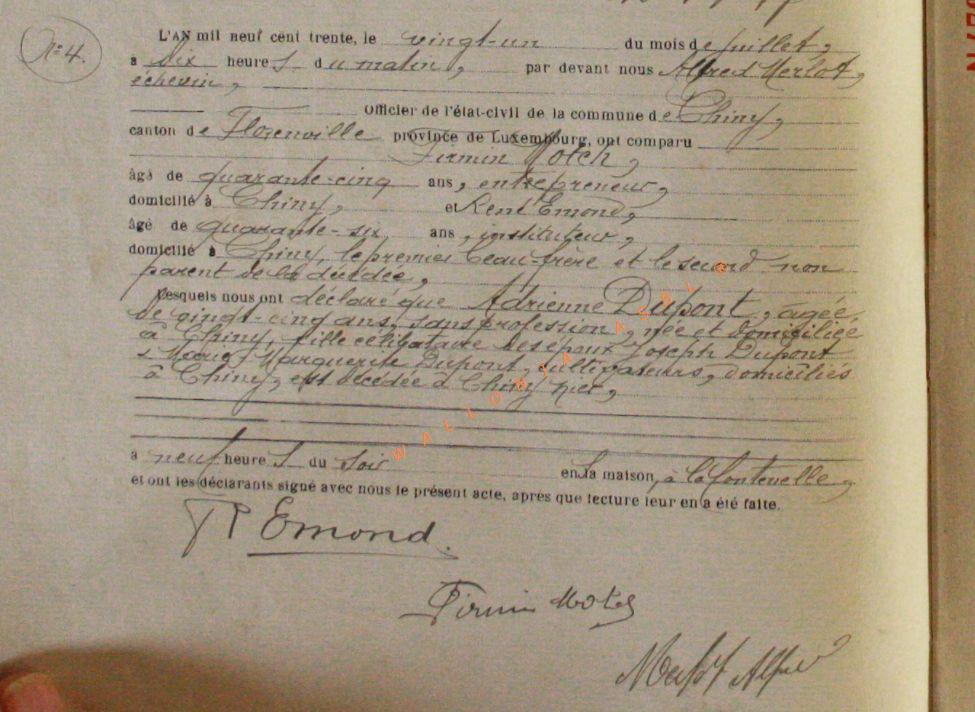 N° 4.
L'AN mil neuf cent trente, le vingt-un du mois de juillet,
à dix heures du matin, par devant nous Alfred Merlot,
échevin,
Officier de l'état-civil de la commune de Chiny,
canton de Florenville province de Luxembourg, ont comparu
Firmin
âgé de quarante-cinq ans, entrepreneur,
domicilié à Chiny, et René Emond,
âgé de quarante-six ans, instituteur,
domicilié à Chiny, le premier beau-frère et le second non
parent de la décédée,
Lesquels nous ont déclaré que Adrienne Dupont, âgée
de vingt-cinq ans, sans profession, née et domiciliée
à Chiny, fille célibataire des époux Joseph Dupont
Marguerite Dupont, cultivateurs, domiciliés
à Chiny, est décédée à Chiny hier,
à neuf heures du soir en sa maison, à la Fontenelle,
et ont les déclarants signé avec nous le présent acte, après que lecture leur en a été faite.
R Emond.
Firmin
Merlot Alfred
WALLONIA ASBL